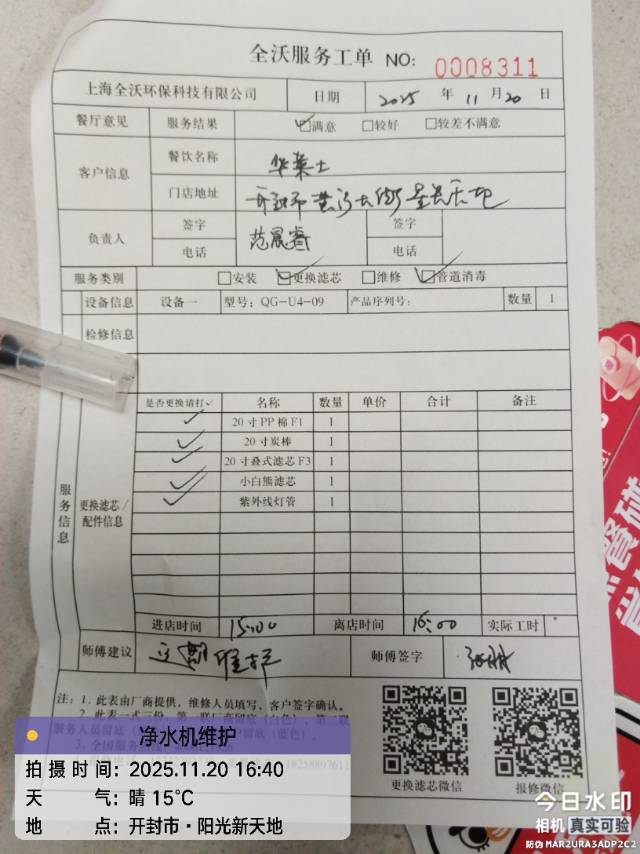 全沃服务工单 NO: 0008311
上海全沃环保科技有限公司 日期 2025 年 11 月 20 日
餐厅意见 服务结果 ☑满意 □较好 □较差不满意
客户信息 餐饮名称 华莱士
门店地址 开封市黄河大街星光天地
负责人 签字 范晨睿 签字
电话 电话
服务类别 □安装 ☑更换滤芯 □维修 ☑管道消毒
设备信息 设备一 型号: QG-U4-09 产品序列号: 数量 1
检修信息
服务信息
更换滤芯/配件信息
是否更换请打✓ 名称 数量 单价 合计 备注
✓ 20寸PP棉F1 1
✓ 20寸炭棒 1
✓ 20寸叠式滤芯F3 1
✓ 小白熊滤芯 1
✓ 紫外线灯管 1
进店时间 15:00 离店时间 16:00 实际工时
师傅建议 定期维护 师傅签字
注: 1. 此表由厂商提供, 维修人员填写, 客户签字确认。
2. 此表一式三份, 第一联厂商留底(白色), 第二联
服务人员留底
留底(蓝色)。
3. 全国服务
18258897611
更换滤芯微信 报修微信
净水机维护
拍摄时间: 2025.11.20 16:40
天 气: 晴 15℃
地 点: 开封市·阳光新天地
今日水印
相机 真实可验
防伪 MAR2URA3ADP2C2